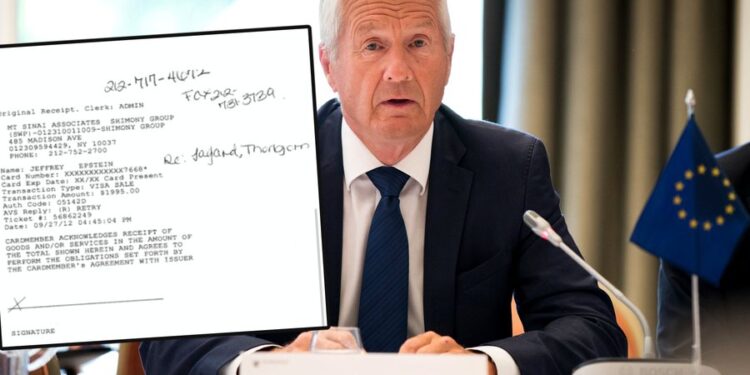 212-717-4672
Fax 212-
731-3739
Original Receipt. Clerk: ADMIN
MT SINAI ASSOCIATES SHIMONY GROUP
(SWP)-012310011009-SHIMONY GROUP
485 MADISON AVE
012309594429, NY 10037
PHONE: 212-752-2700
Re: Jagland, Thorbjorn
Name: JEFFREY EPSTEIN
Card Number: XXXXXXXXXXXX7668*
Card Exp Date: XX/XX Card Present
Transaction Type: VISA SALE
Transaction Amount: $1995.00
Auth Code: 05142D
AVS Reply: (R) RETRY
Ticket #: 56862249
Date: 09/27/12 04:45:04 PM
CARDMEMBER ACKNOWLEDGES RECEIPT OF
GOODS AND/OR SERVICES IN THE AMOUNT OF
THE TOTAL SHOWN HEREIN AND AGREES TO
PERFORM THE OBLIGATIONS SET FORTH BY
THE CARDMEMBER'S AGREEMENT WITH ISSUER
X
SIGNATURE
BOSCH